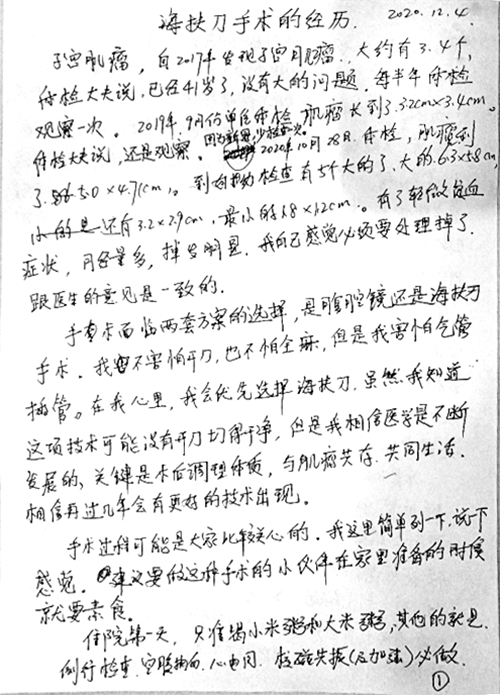 海扶刀手术的经历. 2020.12.4.
子宫肌瘤，自2017年发现子宫肌瘤.大约有3.4个,
体检大夫说,已经41岁了,没有大的问题.每半年体检
观察一次。2019年9月份单位体检.肌瘤长到3.32cm×3.4cm。
体检大夫说,还是观察。少检查一次.2020年10月28日.体检,肌瘤到
5.0×4.71cm。检查有5个大的了.大的6.3×5.8cm,
小的是还有3.2×2.9cm,最小的1.8×1.2cm。有了轻微贫血
症状,月经量多,掉发明显.我自己感觉必须要处理掉了.
跟医生的意见是一致的.
手术面临两套方案的选择,是腹腔镜还是海扶刀
手术.我不害怕开刀,也不怕全麻,但是我害怕气管
插管。在我心里,我会优先选择海扶刀.虽然我知道
这项技术可能没有开刀切得干净,但是我相信医学是不断
发展的、关键是术后调理体质,与肌瘤共存.共同生活.
相信再过几年会有更好的技术出现.
手术过程可能是大家比较关心的.我这里简单列一下,说下
感觉.建议要做这种手术的小伙伴在家里准备的时候
就要素食.
住院第一天,只准喝小米粥和大米粥,其他的就是.
例行检查.空腹抽血.心电图.核磁共振(及加强)必做.
①